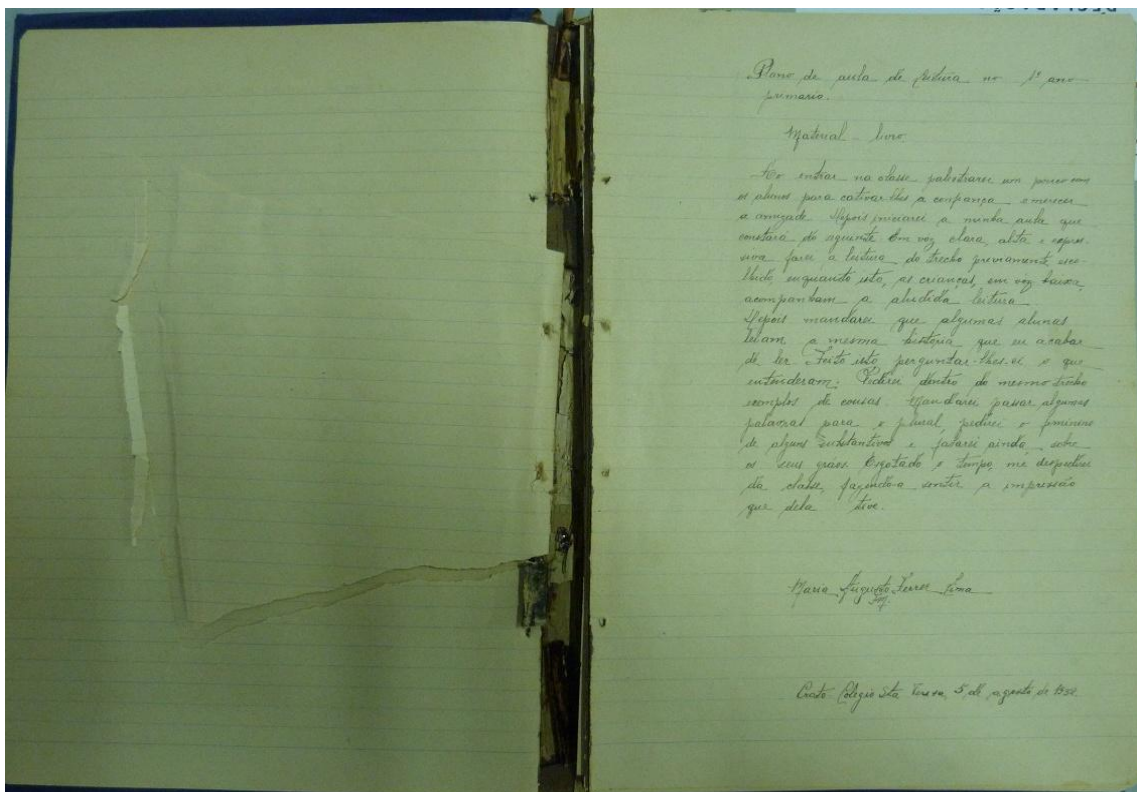 Plano de aula de leitura no 1º ano
primario.
Material - livro.
Ao entrar na classe palestrarei um pouco com
os alunos para cativar-lhes a confiança e merecer
a amizade. Depois iniciarei a minha aula que
constará do seguinte: Em voz clara, alta e expres-
siva farei a leitura do trecho previamente esco-
lhido, enquanto isto, as crianças, em voz baixa,
acompanham a aludida leitura.
Depois mandarei que algumas alunas
leiam a mesma história que eu acabar
de ler. Feito isto, perguntar-lhes-ei o que
entenderam. Pedirei dentro do mesmo trecho
exemplos de cousas. Mandarei passar algumas
palavras para o plural, pedirei o feminino
de alguns substantivos e falarei ainda, sobre
os seus gráos. Esgotado o tempo, me despedirei
da classe, fazendo-a sentir a impressão
que dela tive.
Maria Augusta Ferrer Lima
Crato Colégio Sta Teresa, 5 de agosto de